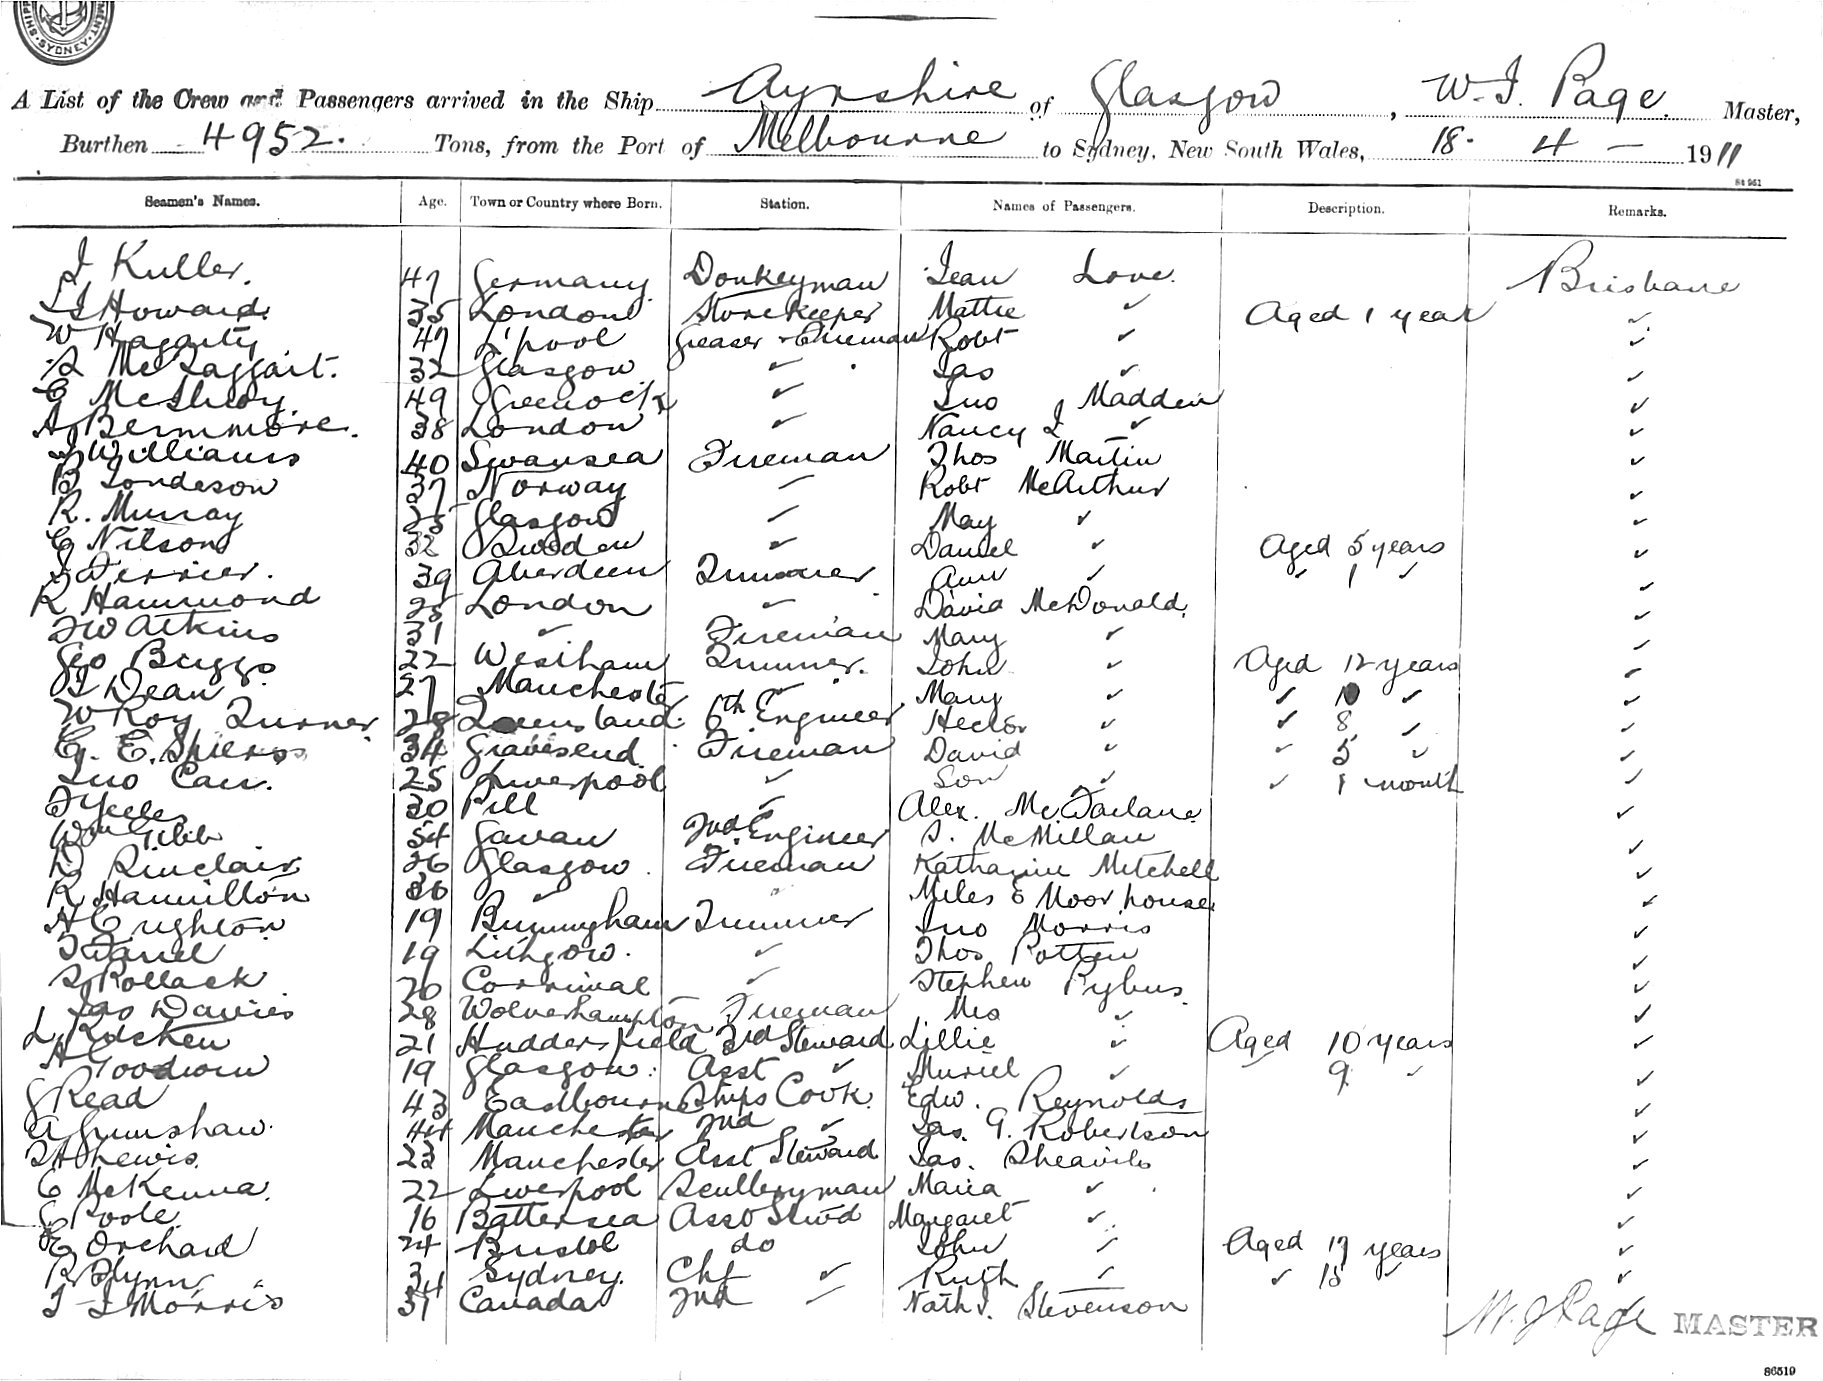 MENT · SYDNEY · SHIP
A List of the Crew and Passengers arrived in the Ship Ayrshire of Glasgow, W. J. Page. Master,
Burthen 4952. Tons, from the Port of Melbourne to Sydney, New South Wales, 18 - 4 - 1911
St 951
Seamen's Names. Age. Town or Country where Born. Station. Names of Passengers. Description. Remarks.
J Kuller. 47 Germany Donkeyman Jean Love. Brisbane
Howard. 35 London Storekeeper Mattie ✓ Aged 1 year ✓
W Hagarty 47 L'pool Greaser + Fireman Robt ✓ ✓
McTaggart. 32 Glasgow ✓ Jas ✓ ✓
49 Greenock ✓ Jno Madden ✓
A Bernmore. 38 London ✓ Nancy J ✓ ✓
J Williams 40 Swansea Fireman Thos Martin ✓
B Tondeson 37 Norway ✓ Robt McArthur ✓
R. Murray 25 Glasgow ✓ May ✓ ✓
C Nilson 32 Sweden ✓ Daniel ✓ Aged 5 years ✓
J Ferrier. 39 Aberdeen Trimmer Ann ✓ ✓ 1 ✓ ✓
R Hammond 25 London ✓ David McDonald. ✓
F W Atkins 31 ✓ Fireman Mary ✓ ✓
Geo Briggs 22 Westham Trimmer. John ✓ Aged 12 years ✓
J Dean 27 Manchester ✓ Mary ✓ ✓ 10 ✓ ✓
W Roy Turner 28 Queensland. 6th Engineer Hector ✓ ✓ 8 ✓ ✓
G. E. Spiers 34 Gravesend. Fireman David ✓ ✓ 5 ✓ ✓
Jno Carr. 25 Liverpool ✓ Son ✓ ✓ 1 month ✓
30 Pill ✓ Alex. McFarlane ✓
Wm Gibb 54 Govan 2nd Engineer S. McMillan
D Sinclair 26 Glasgow. Fireman Katharine Mitchell ✓
R Hamilton 36 ✓ Miles E Moorhouse ✓
19 Birmingham Trimmer Jno Morris ✓
19 Lithgow. ✓ Thos Potten ✓
Pollack 20 Corrimal ✓ Stephen Pybus. ✓
Jas Davies 28 Wolverhampton Fireman Mrs ✓ ✓
L Kitchen 21 Huddersfield 3rd Steward Lillie ✓ Aged 10 years ✓
A Goodwin 19 Glasgow. Asst ✓ Muriel ✓ ✓ 9 ✓ ✓
G Read 43 Eastbourne Ships Cook. Edw. Reynolds ✓
A Grimshaw. 44 Manchester 2nd ✓ Jas. G. Robertson ✓
Lewis. 23 Manchester Asst Steward Jas. ✓
C McKenna. 22 Liverpool Sculleryman Maria ✓ ✓
G Poole. 16 Battersea Asst Stwd Margaret ✓ ✓
E Orchard 24 Bristol do John ✓ Aged 17 years ✓
R Flynn 34 Sydney. Chf ✓ Ruth ✓ ✓ 15 ✓ ✓
J J Morris 37 Canada 2nd ✓ Nath. J. Stevenson
W. J Page MASTER
86519